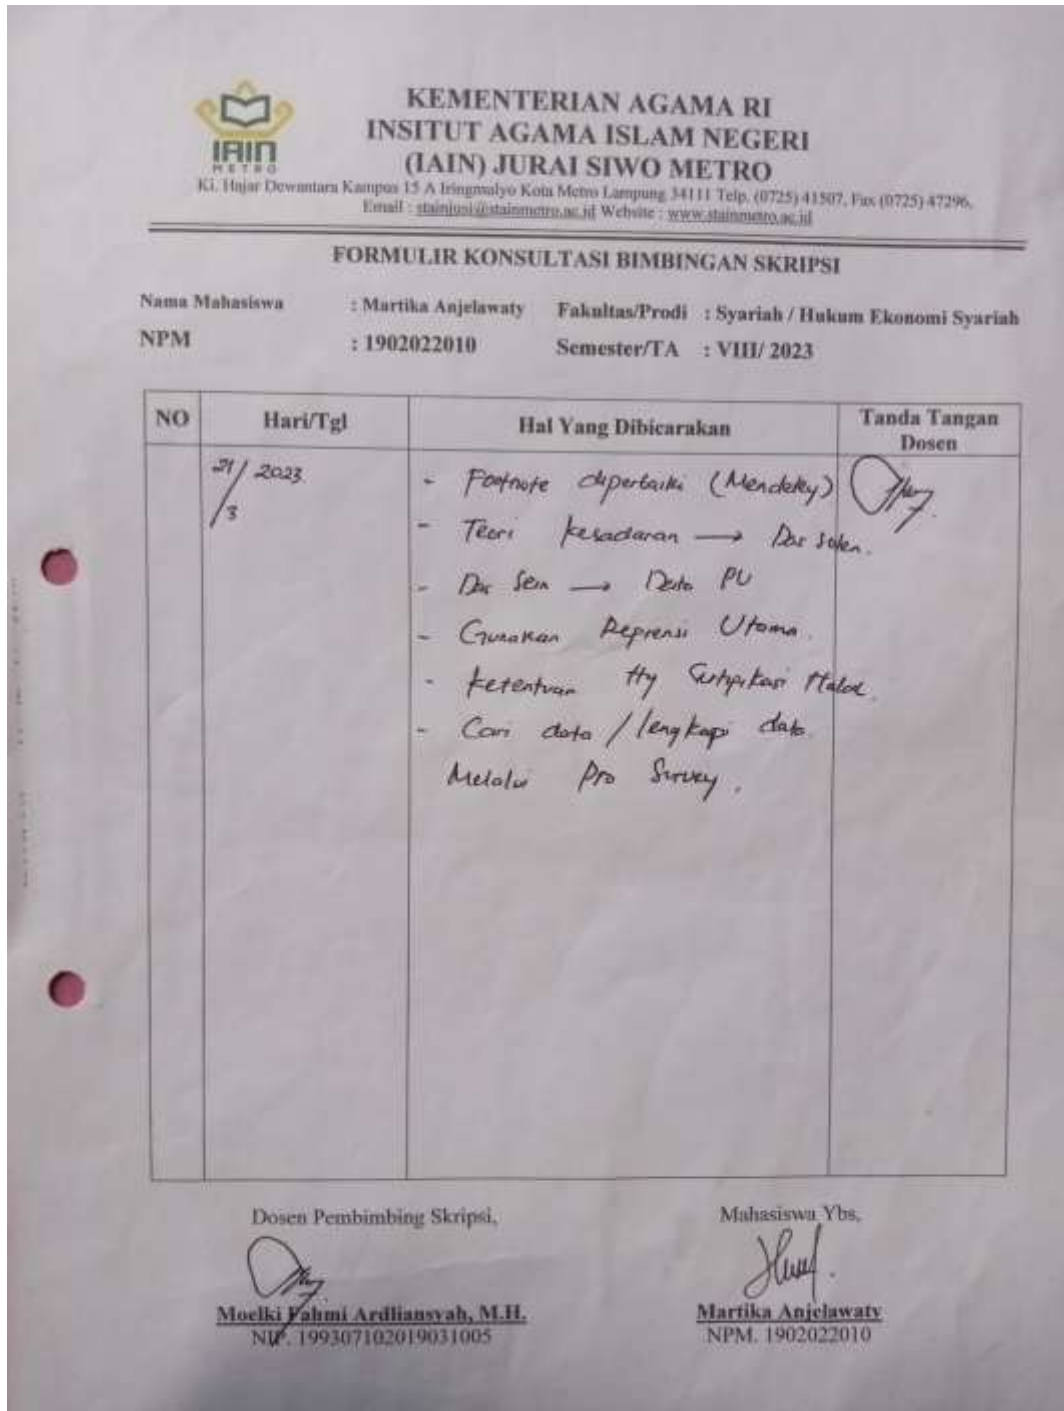 IAIN
METRO
KEMENTERIAN AGAMA RI
INSITUT AGAMA ISLAM NEGERI
(IAIN) JURAI SIWO METRO
Ki. Hajar Dewantara Kampus 15 A Iringmulyo Kota Metro Lampung 34111 Telp. (0725) 41507, Fax (0725) 47296,
Email : stainjusi@stainmetro.ac.id Website : www.stainmetro.ac.id
FORMULIR KONSULTASI BIMBINGAN SKRIPSI
Nama Mahasiswa : Martika Anjelawaty Fakultas/Prodi : Syariah / Hukum Ekonomi Syariah
NPM : 1902022010 Semester/TA : VIII/ 2023
NO Hari/Tgl Hal Yang Dibicarakan Tanda Tangan
Dosen
21/3 2023.
- Footnote diperbaiki (Mendeley)
- Teori kesadaran → Das Solen.
- Das Sein → Data PU
- Gunakan Reprensi Utama.
- Ketentuan Sertipikasi Halal.
- Cari data / lengkapi data.
Melalui Pra Survey.
Dosen Pembimbing Skripsi, Mahasiswa Ybs,
Moelki Fahmi Ardliansyah, M.H. Martika Anjelawaty
NIP. 199307102019031005 NPM. 1902022010